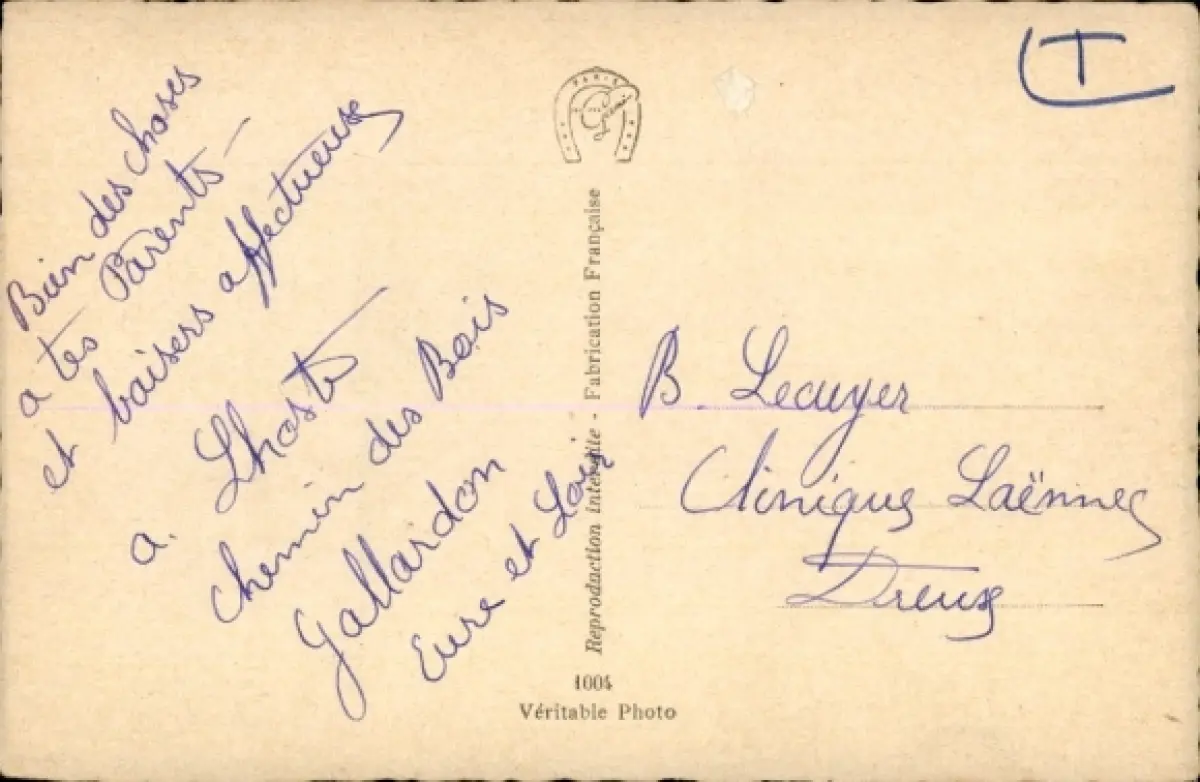 Bien des choses
a tes Parents -
et baisers affectueux
a. Lhoste
chemin des Bois
Gallardon
Eure et Loir
PARIS
Reproduction interdite - Fabrication Française
1004
Véritable Photo
T
B. Lecuyer
Clinique Laënnec
Dreux